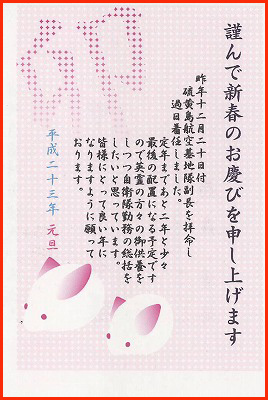 謹んで新春のお慶びを申し上げます
昨年十二月二十日付
硫黄島航空基地隊副長を拝命し
過日着任しました。
定年まであと二年と少々
最後の配置になる予定です
ので英霊の方々の御供養を
しつつ自衛隊勤務の総括を
したいと思っています。
皆様にとって良い年に
なりますように願って
おります。
平成二十三年 元旦